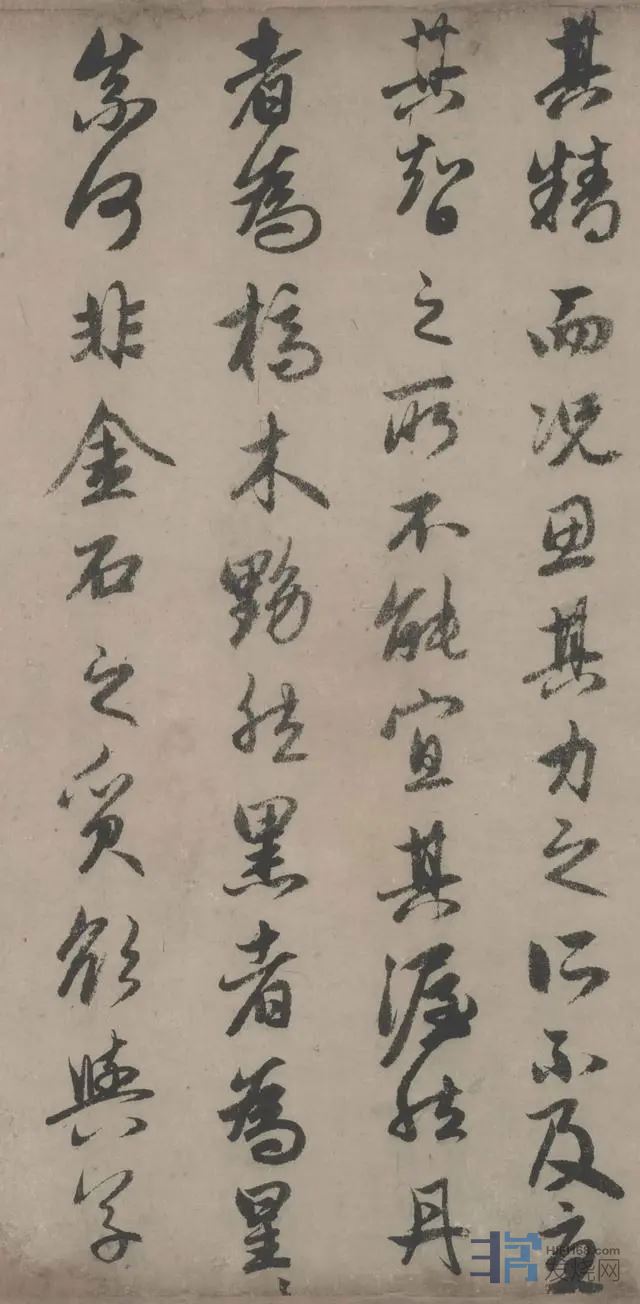 其精而况思其力之所不及憂
其智之所不能宜其渥然丹
者為槁木黟然黑者為星〻
奈何非金石之質欲與草
HIFI168.com
发烧网